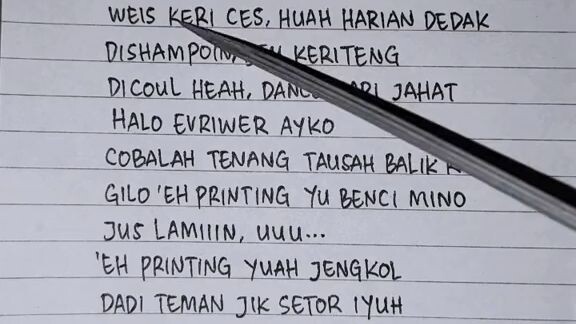 WEIS KERI CES, HUAH HARIAN DEDAK
DISHAMPOIN, KERITENG
DICOUL HEAH, JAHAT
HALO EVRIWER AYKO
COBALAH TENANG TAUSAH BALIK
GILO 'EH PRINTING YU BENCI MINO
JUS LAMIIIN, UUU...
'EH PRINTING YUAH JENGKOL
DADI TEMAN JIK SETOR IYUH